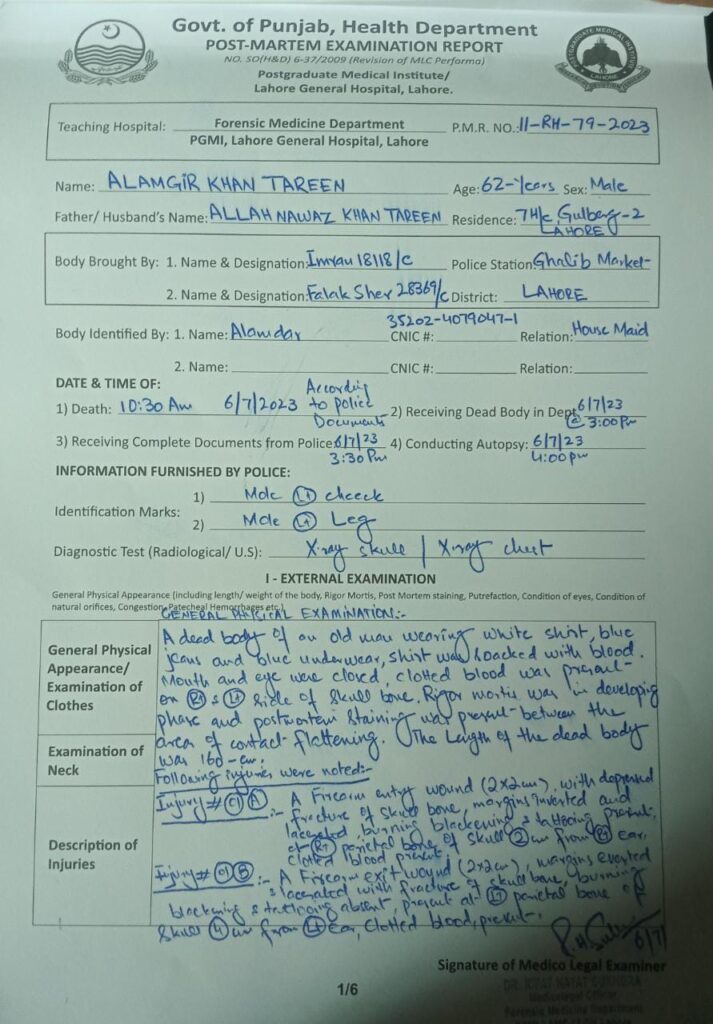 Govt. of Punjab, Health Department
POST-MARTEM EXAMINATION REPORT
NO. SO(H&D) 6-37/2009 (Revision of MLC Performa)
Postgraduate Medical Institute/
Lahore General Hospital, Lahore.
POSTGRADUATE MEDICAL INSTITUTE
LAHORE
Teaching Hospital: Forensic Medicine Department P.M.R. NO.: 11-RH-79-2023
PGMI, Lahore General Hospital, Lahore
Name: ALAMGIR KHAN TAREEN Age: 62-Years Sex: Male
Father/ Husband's Name: ALLAH NAWAZ KHAN TAREEN Residence: 7H/c, Gulberg-2
LAHORE
Body Brought By: 1. Name & Designation: Imran 18118/c Police Station: Ghalib Market
2. Name & Designation: Falak Sher 28369/c District: LAHORE
35202-4079047-1
Body Identified By: 1. Name: Alamdar CNIC #: Relation: House Maid
2. Name: CNIC #: Relation:
DATE & TIME OF:
According
1) Death: 10:30 Am 6/7/2023 to police 2) Receiving Dead Body in Dept 6/7/23
Documents @ 3:00Pm
3) Receiving Complete Documents from Police: 6/7/23 4) Conducting Autopsy: 6/7/23
3:30 Pm 4:00 pm
INFORMATION FURNISHED BY POLICE:
Identification Marks: 1) Mole (Lt) cheeck
2) Mole (Lt) Leg
Diagnostic Test (Radiological/ U.S): X.ray skull / X.ray chest
I - EXTERNAL EXAMINATION
General Physical Appearance (including length/ weight of the body, Rigor Mortis, Post Mortem staining, Putrefaction, Condition of eyes, Condition of
natural orifices, Congestion, Patecheal Hemorrhages etc.)
GENERAL PHYSICAL EXAMINATION:-
General Physical
Appearance/
Examination of
Clothes
A dead body of an old man wearing white shirt, blue
jeans and blue underwear, shirt was soacked with blood.
Mouth and eye were closed, clotted blood was present
on (Rt) & (Lt) side of skull bone. Rigor mortis was in developing
phase and postmortem staining was present between the
area of contact flattening. The Length of the dead body
was 160-cm.
Examination of
Neck
Following injuries were noted:-
Description of
Injuries
Injury # (1) (A) :- A Firearm entry wound (2x2cm), with depressed
fracture of skull bone, margins inverted and
lacerated, burning blackening & tattoing present
at (Rt) parietal bone of skull (2) cm from (Rt) ear,
clotted blood present.
Injury # (1) (B) :- A Firearm exit wound (2x2cm), margins everted
& lacerated with fracture of skull bone, burning
blackening & tattoing absent, present at (Lt) parietal bone of
skull (4) cm from (Lt) ear, clotted blood, present.
6/7/
Signature of Medico Legal Examiner
Medicolegal Officer
Forensic Medicine Department
1/6